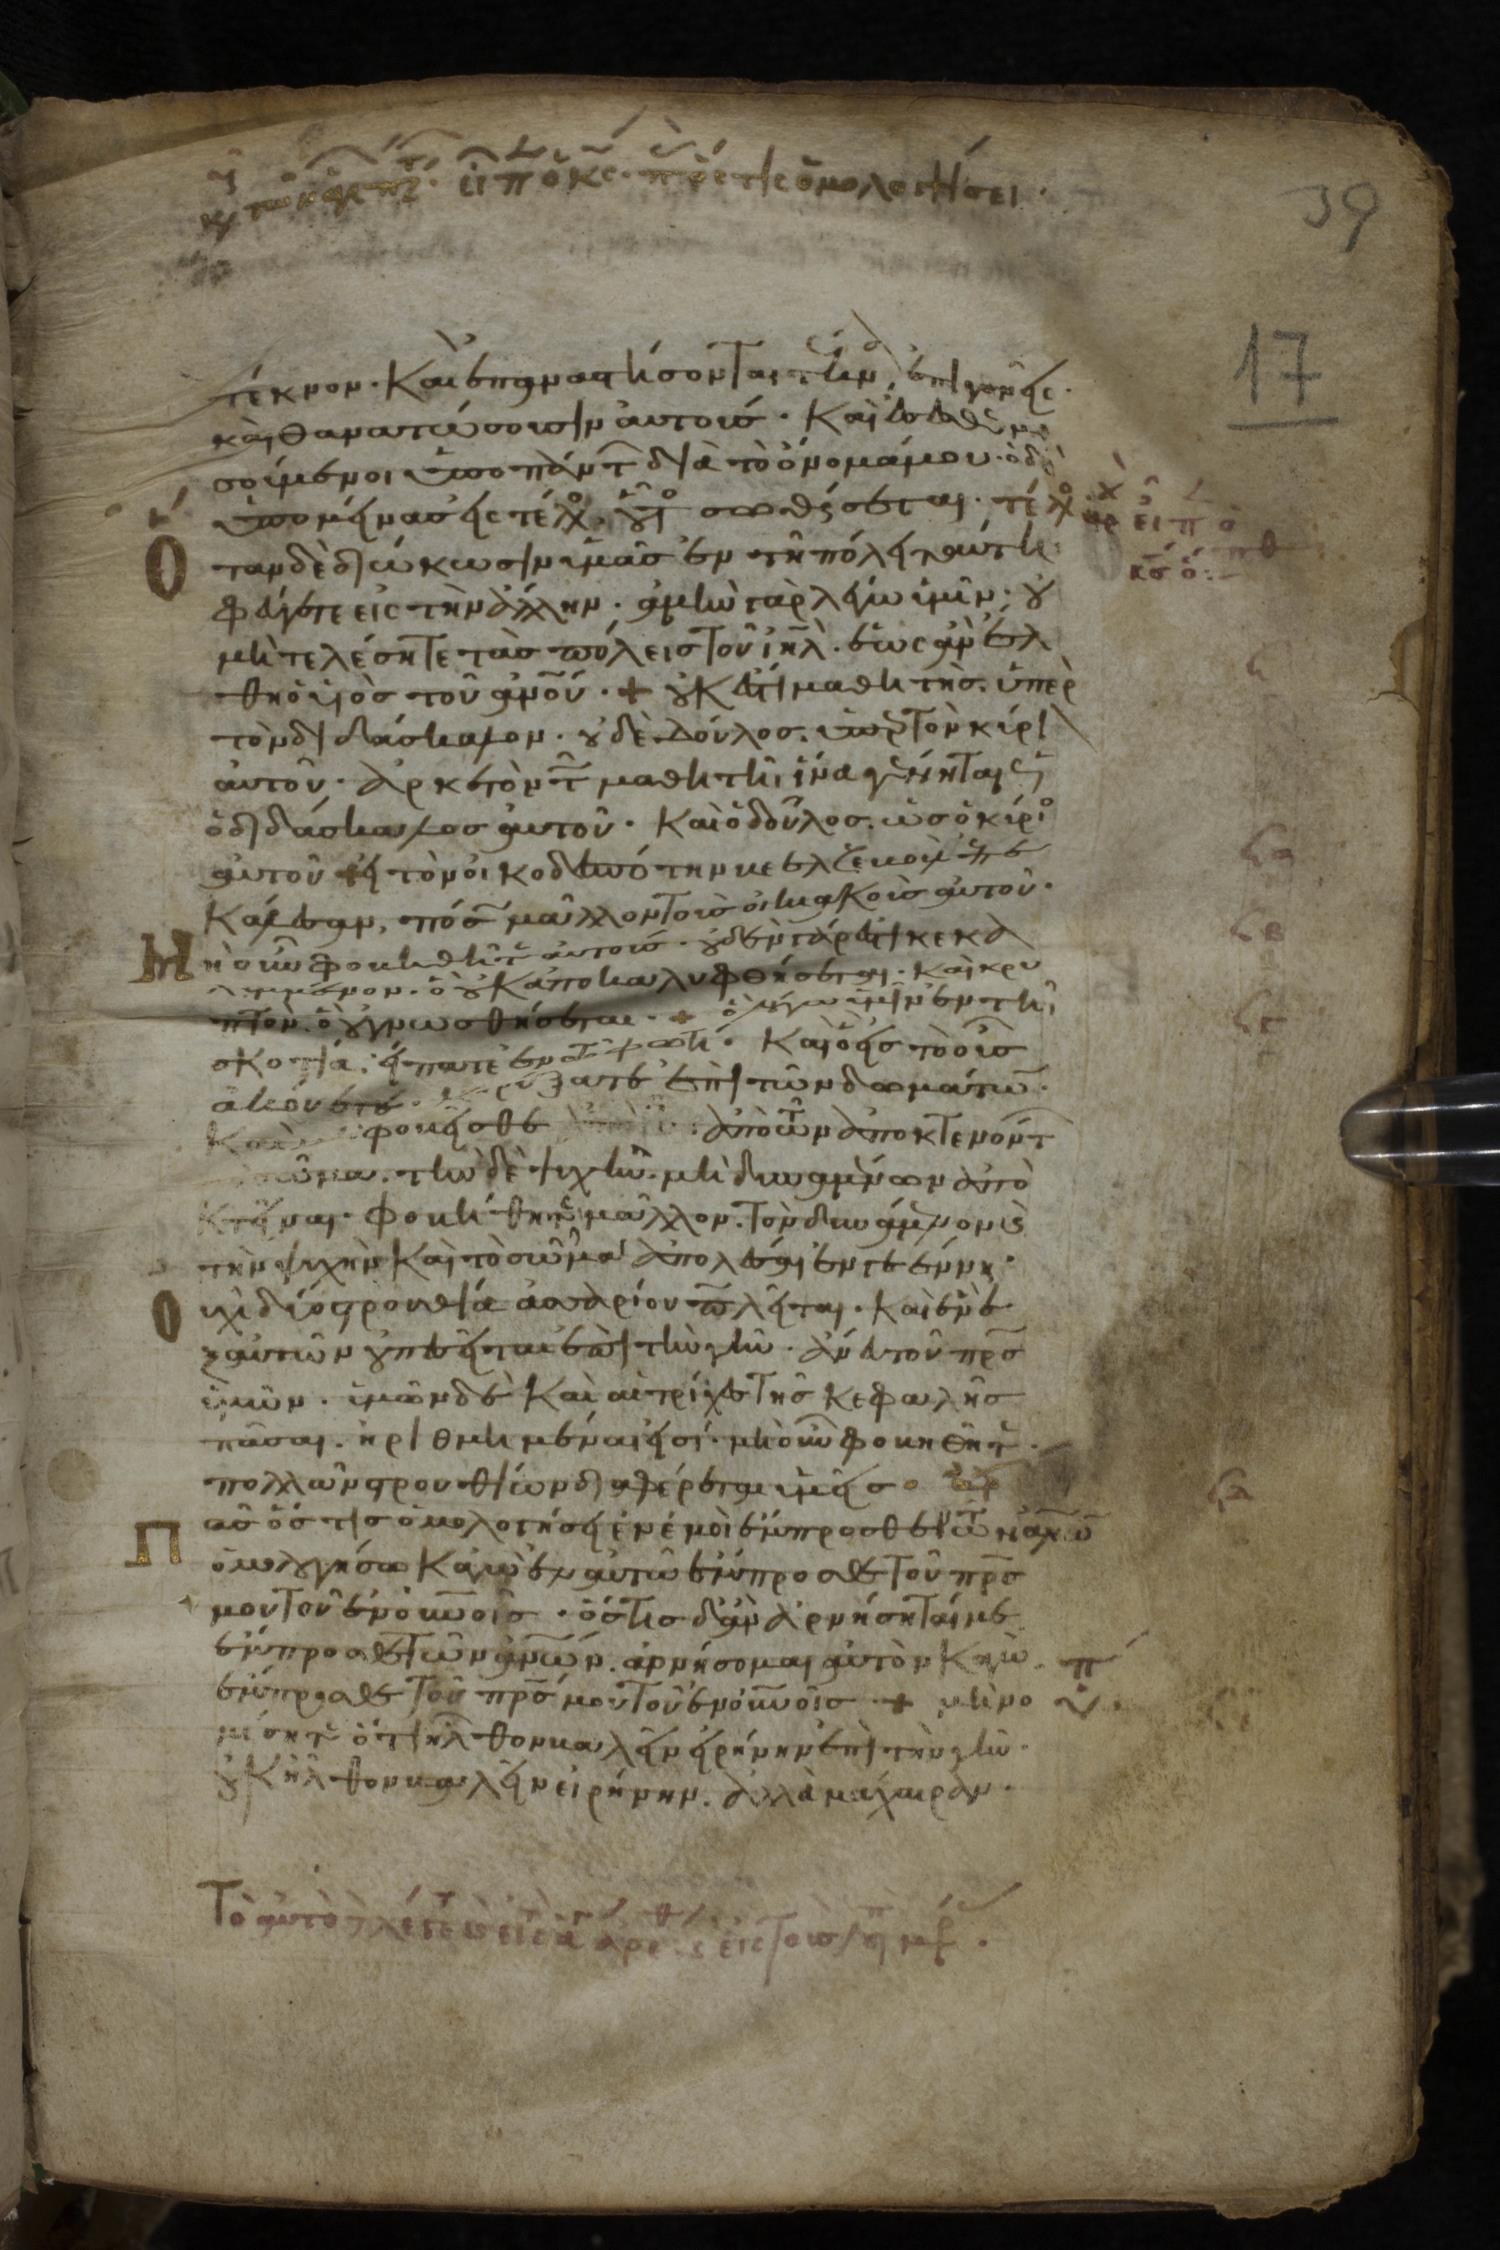 εἶπεν ὁ κς πᾶς ὅστις ὁμολογήσει
39
17
τέκνον· καὶ ἐπαναστήσονται τέκνα ἐπὶ γονεῖς·
καὶ θανατώσουσιν αὐτούς· καὶ ἔσεσθε μι
σούμενοι ὑπὸ πάντ διὰ τὸ ὄνομά μου· ὁ δὲ
ὑπομείνας εἰς τέλος, οὗτος σωθήσεται· τέλος
εἶπεν ὁ
κς ὁ
Ο ταν δὲ διώκωσιν ὑμᾶς ἐν τῆ πόλει ταύτη
φεύγετε εἰς τὴν ἄλλην· ἀμὴν γὰρ λέγω ὑμῖν· οὐ
μὴ τελέσητε τὰς πόλεις τοῦ ιηλ· ἕως ἂν ἔλ
θη ὁ υἱὸς τοῦ ανου· + οὐκ ἔστι μαθητὴς ὑπὲρ
τὸν διδάσκαλον· οὐδὲ δοῦλος ὑπὲρ τὸν κύριον
αὐτοῦ· ἀρκετὸν τῶ μαθητῆ ἵνα γένηται ὡς
ὁ διδάσκαλος αὐτοῦ· καὶ ὁ δοῦλος ὡς ὁ κύριος
αὐτοῦ εἰ τὸν οἰκοδεσπότην βεελζεβοὺλ
κάλεσαν, πόσω μᾶλλον τοὺς οἰκιακοὺς αὐτοῦ·
Μ ὴ οὖν φοβηθῆτε αὐτούς· οὐδὲν γάρ ἐστι κεκα
λυμμένον· ὃ οὐκ ἀποκαλυφθήσεται· καὶ κρυ
πτὸν ὃ οὐ γνωσθήσεται· + ὃ λέγω ὑμῖν ἐν τῆ
σκοτία· εἴπατε ἐν τῶ φωτί· καὶ ὃ εἰς τὸ οὖς
ἀκούετε· κηρύξατε ἐπὶ τῶν δωμάτων·
καὶ φοβεῖσθε ἀπὸ τῶν ἀποκτενόντ
σῶμα· τὴν δὲ ψυχὴν μὴ δυναμένων ἀπο
κτεῖναι· φοβήθητε μᾶλλον τὸν δυνάμενον
τὴν ψυχὴν καὶ τὸ σῶμα ἀπολέσαι ἐν γεέννη·
Ο υχὶ δύο στρουθία ἀσσαρίου πωλεῖται· καὶ ἓν ἐ
ξ αὐτῶν οὐ πεσεῖται ἐπὶ τὴν γῆν· ἄνευ τοῦ πρς
ὑμῶν· ὑμῶν δὲ καὶ αἱ τρίχες τῆς κεφαλῆς
πᾶσαι ἠριθμημέναι εἰσί· μὴ οὖν φοβηθῆτε·
πολλῶν στρουθίων διαφέρεται ὑμεῖς
Π ας ὅστις ὁμολογήσει ἐν ἐμοὶ ἔμπροσθεν τῶν ανων
ὁμολογήσω κἀγὼ ἐν αὐτῶ ἔμπροσθεν τοῦ πρς
μου τοῦ ἐν οὐνοῖς· ὅστις δ' ἂν ἀρνήσηταί με
ἔμπροσθεν τῶν ανων· ἀρνήσομαι αὐτὸν κἀγὼ
ἔμπροσθεν τοῦ πρς μου τοῦ ἐν οὐνοῖς + μὴ νο
μίσητε ὅτι ἦλθον βαλεῖν εἰρήνην ἐπὶ τὴν γῆν·
οὐκ ἦλθον βαλεῖν εἰρήνην· ἀλλὰ μάχαιραν·
Τὸ αὐτὸ λέγε εἰς